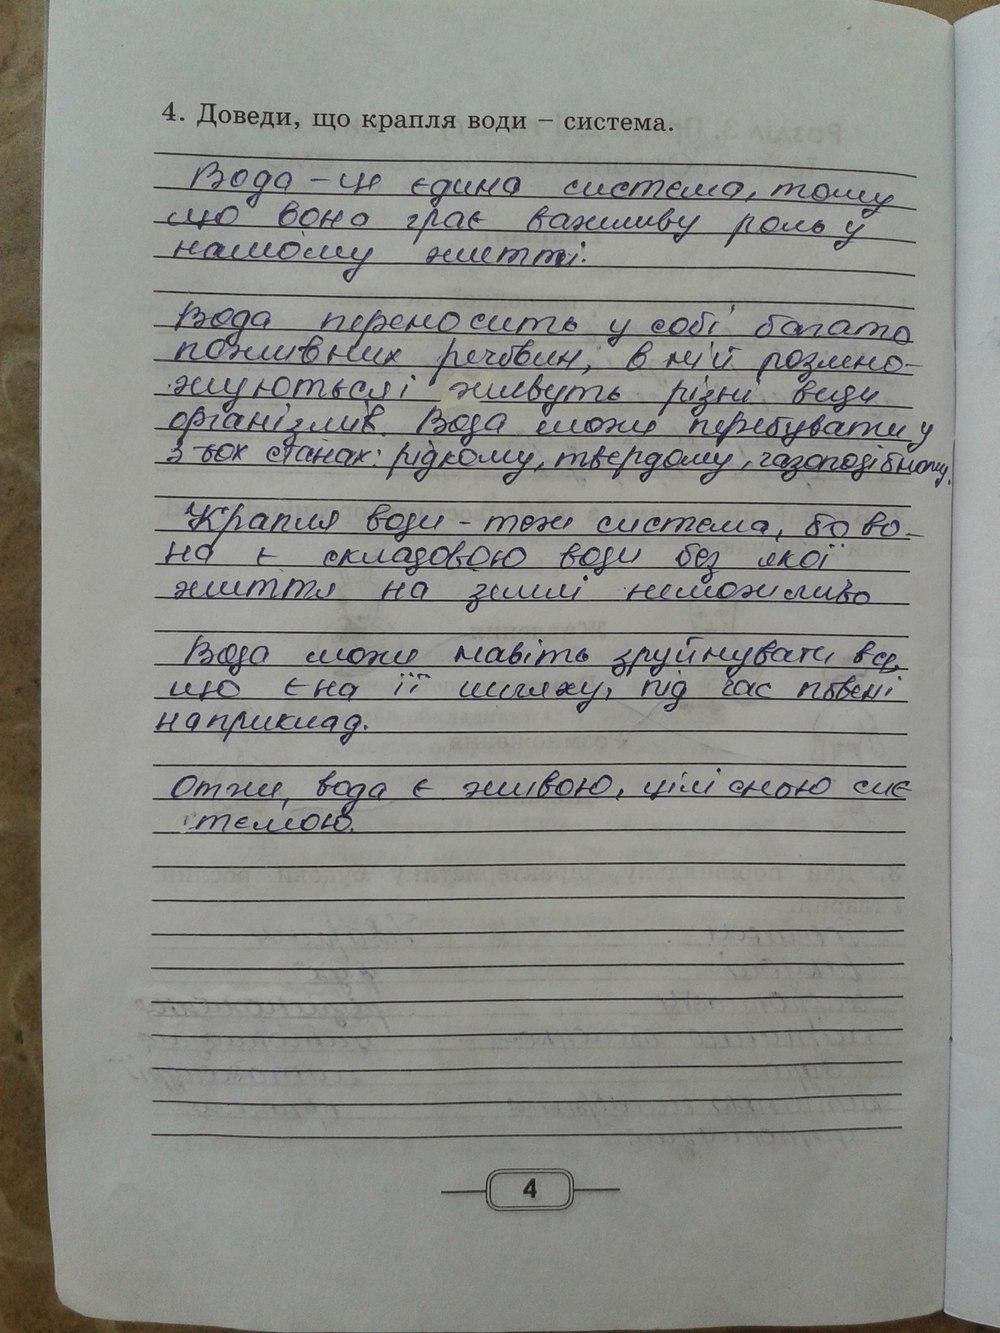 4. Доведи, що крапля води – система.
Вода – це єдина система, тому
що вона грає важливу роль у
нашому житті.
Вода переносить у собі багато
поживних речовин, в ній розмно-
жуються і живуть різні види
організмів. Вода може перебувати у
3-ьох станах: рідкому, твердому, газоподібному.
Крапля води – теж система, бо во-
на є складовою води без якої
життя на землі неможливо
Вода може навіть зруйнувати все,
що є на її шляху, під час повені
наприклад.
Отже, вода є живою, цілісною сис
темою.
4